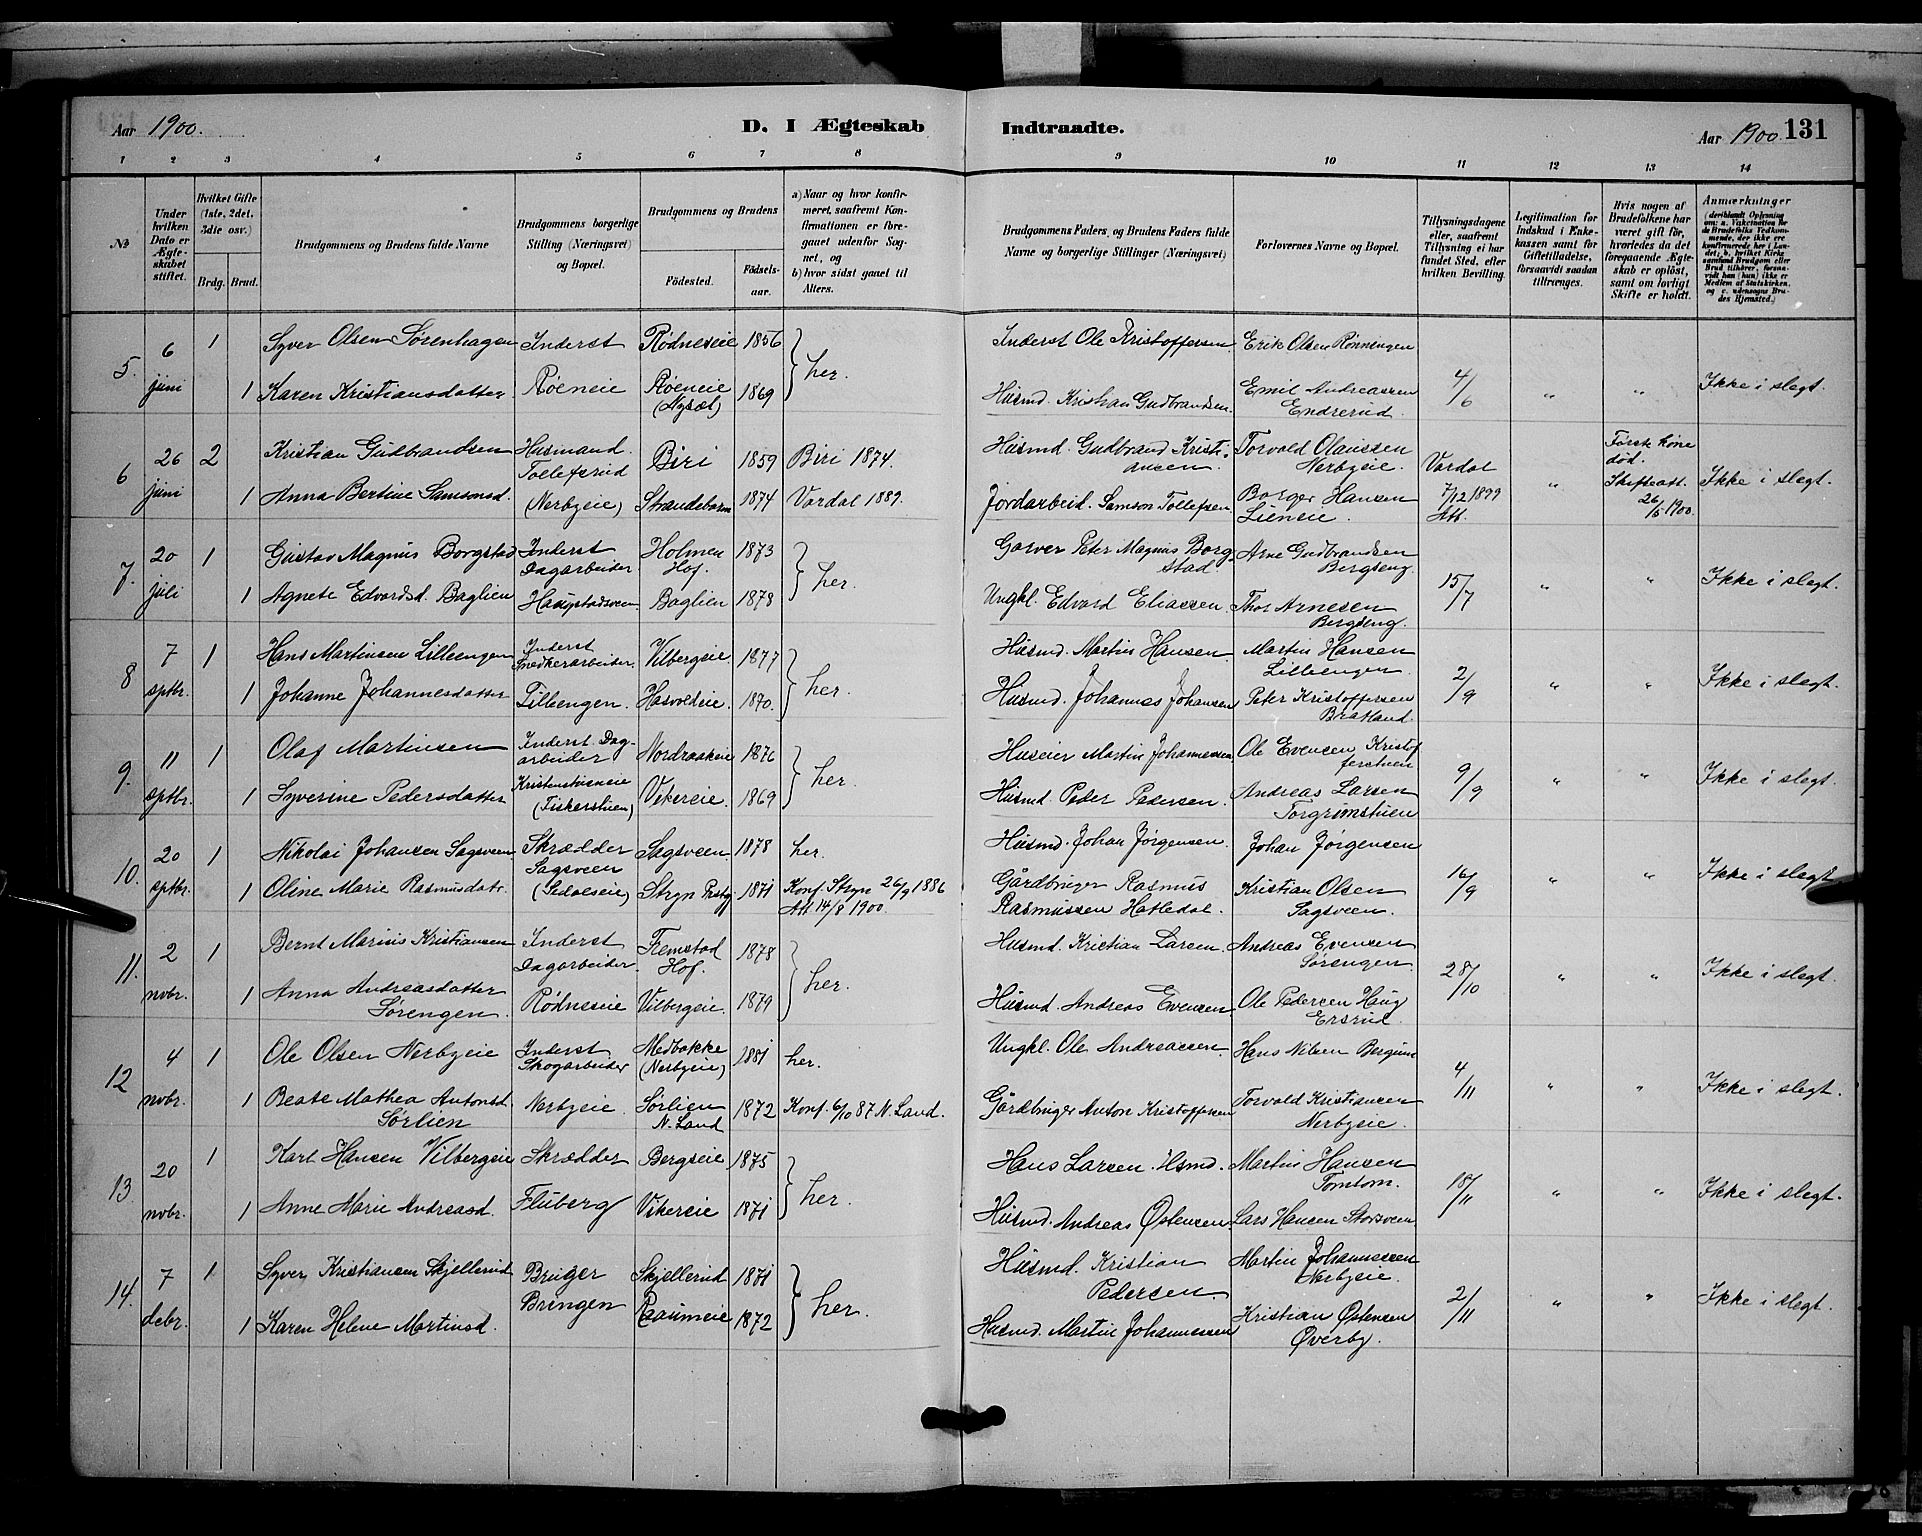 Aar 1900. D. I Ægteskab Indtraadte. Aar 1900. 131
1 2 3 4 5 6 7 8 9 10 11 12 13 14
No
Under hvilken Dato er Ægteskabet stiftet.
Hvilket Gifte (1ste, 2det, 3die osv.)
Brdg. Brud.
Brudgommens og Brudens fulde Navne
Brudgommens borgerlige Stilling (Næringsvei) og Bopæl.
Brudgommens og Brudens
Fødested. Fødselsaar.
a) Naar og hvor konfirmeret, saafremt Konfirmationen er foregaaet udenfor Sognet, og
b) hvor sidst gaaet til Alters.
Brudgommens Faders og Brudens Faders fulde Navne og borgerlige Stillinger (Næringsvei)
Forlovernes Navne og Bopæl.
Tillysningsdagene eller, saafremt Tillysning ei har fundet Sted, efter hvilken Bevilling.
Legitimation for Indskud i Enkekassen samt for Giftetilladelse, forsaavidt saadan tiltrænges.
Hvis nogen af Brudefolkene har været gift før, hvorledes da det foregaaende Ægteskab er opløst, samt om lovligt Skifte er holdt.
Anmærkninger
(deriblandt Oplysning om: a. Vaksination for de Brudefolks Vedkommende, der ikke ere konfirmerede her i Landet; b. hvilket Kirkesamfund Brudgom eller Brud tilhører, forsaavidt han (hun) ikke er Medlem af Statskirken, og c. udensogns Brudes Hjemsted.)
5. 6 juni 1 Syver Olsen Sørenhagen Inderst Rødneseie 1856 } her. Inderst Ole Kristoffersen Erik Olsen Rønningen
1 Karen Kristiansdatter Røeneie Røeneie (Nysæt) 1869 Husmd. Kristian Gudbrandsen. Emil Andreassen Endrerud. 4/6 " " Ikke i slegt.
6 26 juni 2 Kristian Gudbrandsen Husmand. Tollefsrud Biri 1859 Biri 1874. Husmd. Gudbrand Kristiansen. Torvald Olaussen Nerbyeie. Vardal 7/12 1899 Att. " Første kone død. Skifteatt. 26/5 1900. Ikke i slegt.
1 Anna Bertine Samsonsd. (Nerbyeie) Strandebarm 1874 Vardal 1889. Jordarbeid. Samson Tollefsen Borger Hansen Lieneie.
7. 20 juli 1 Gustav Magnus Borgstad Inderst Dagarbeider Holmen Hof. 1873 } her. Garver Peter Magnus Borgstad. Arne Gudbrandsen Bergseng.
1 Agnete Edvardsd. Baglien Haugstadsveen Baglien 1878 Ungkl. Edvard Eliassen Thor Arnesen Bergseng. 15/7 " " Ikke i slegt.
8 7 sptbr. 1 Hans Martinsen Lilleengen Inderst Snedkerarbeider. Vilbergeie 1877 } her. Husmd. Martin Hansen. Martin Hansen Lilleengen
1 Johanne Johannesdatter Lilleengen. Hasvoldeie. 1870. Husmd. Johannes Johansen Peter Kristoffersen Bratland. 2/9 " " Ikke i slegt.
9. 11 sptbr. 1 Olaf Martinsen Inderst Dagarbeider Nordraakeie 1876 } her. Huseier Martin Johannessen Ole Evensen Kristofferstuen
1 Syverine Pedersdatter Kristenstueneie (Fiskerstuen) Vikereie. 1869 Husmd. Peder Pedersen. Andreas Larsen Torgrimstuen 9/9 " " Ikke i slegt.
10. 20 sptbr. 1 Nikolai Johansen Sagsveen Skrædder Sagsveen Sagsveen. 1878 her. Husmd. Johan Jørgensen. Johan Jørgensen
1 Oline Marie Rasmusdatr. Stryn Prstgj. 1871 Konf. Stryn 26/9 1886 Att 14/8 1900. Gårdbruger Rasmus Rasmussen Hatledal. Kristian Olsen Sagsveen. 16/9 " " Ikke i slegt
11. 2 novbr. 1 Bernt Marius Kristiansen Inderst Dagarbeider. Femstad Hof. 1878 } her. Husmd. Kristian Larsen. Andreas Evensen Sørengen.
1 Anna Andreasdatter Sørengen. Rødneseie Vilbergeie. 1879 Husmd. Andreas Evensen Ole Pedersen Haug Ersrud. 28/10 " " Ikke i slegt.
12 4 novbr. 1 Ole Olsen Nerbyeie Inderst Skogarbeider Medbakke (Nerbyeie) 1881 her. Ungkl. Ole Andreassen. Hans Nilsen Bergum
1 Beate Mathea Antonsd. Sørlien Nerbyeie. Sørlien N. Land 1872 Konf. 6/10 87 N. Land. Gårdbruger Anton Kristoffersen Torvald Kristiansen Nerbyeie. 4/11 " " Ikke i slegt.
13. 20 novbr. 1 Karl Hansen Vilbergeie Skrædder Bergseie 1875 } her. Hans Larsen. Hsmd. Martin Hansen Tomtom.
1 Anne Marie Andreasd. Fluberg Vikereie 1871 Husmd. Andreas Østensen Lars Hansen Storsveen 18/11 " " Ikke i slegt.
14. 7 debr. 1 Syver Kristiansen Skjellerud Bruger Skjellerud 1871 } her. Husmd. Kristian Pedersen. Martin Johannessen Nerbyeie.
1 Karen Helene Martinsd. Bringen Raaumeie 1872 Husmd. Martin Johannessen Kristian Østensen Øverby. 2/11 " " Ikke i slegt.